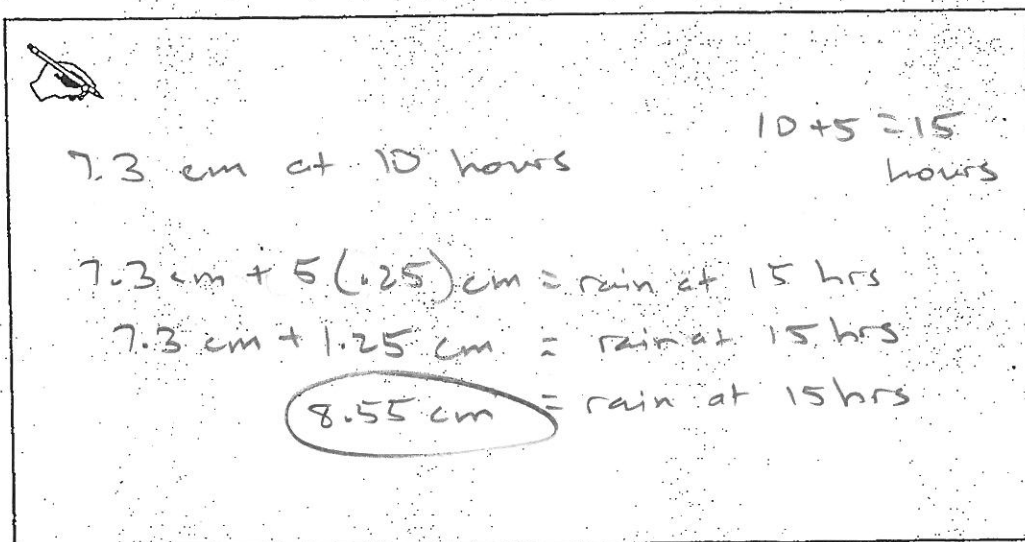 10+5=15
hours
7.3 cm at 10 hours
7.3 cm + 5(.25)cm = rain at 15 hrs
7.3 cm + 1.25 cm = rain at 15 hrs
8.55 cm = rain at 15 hrs